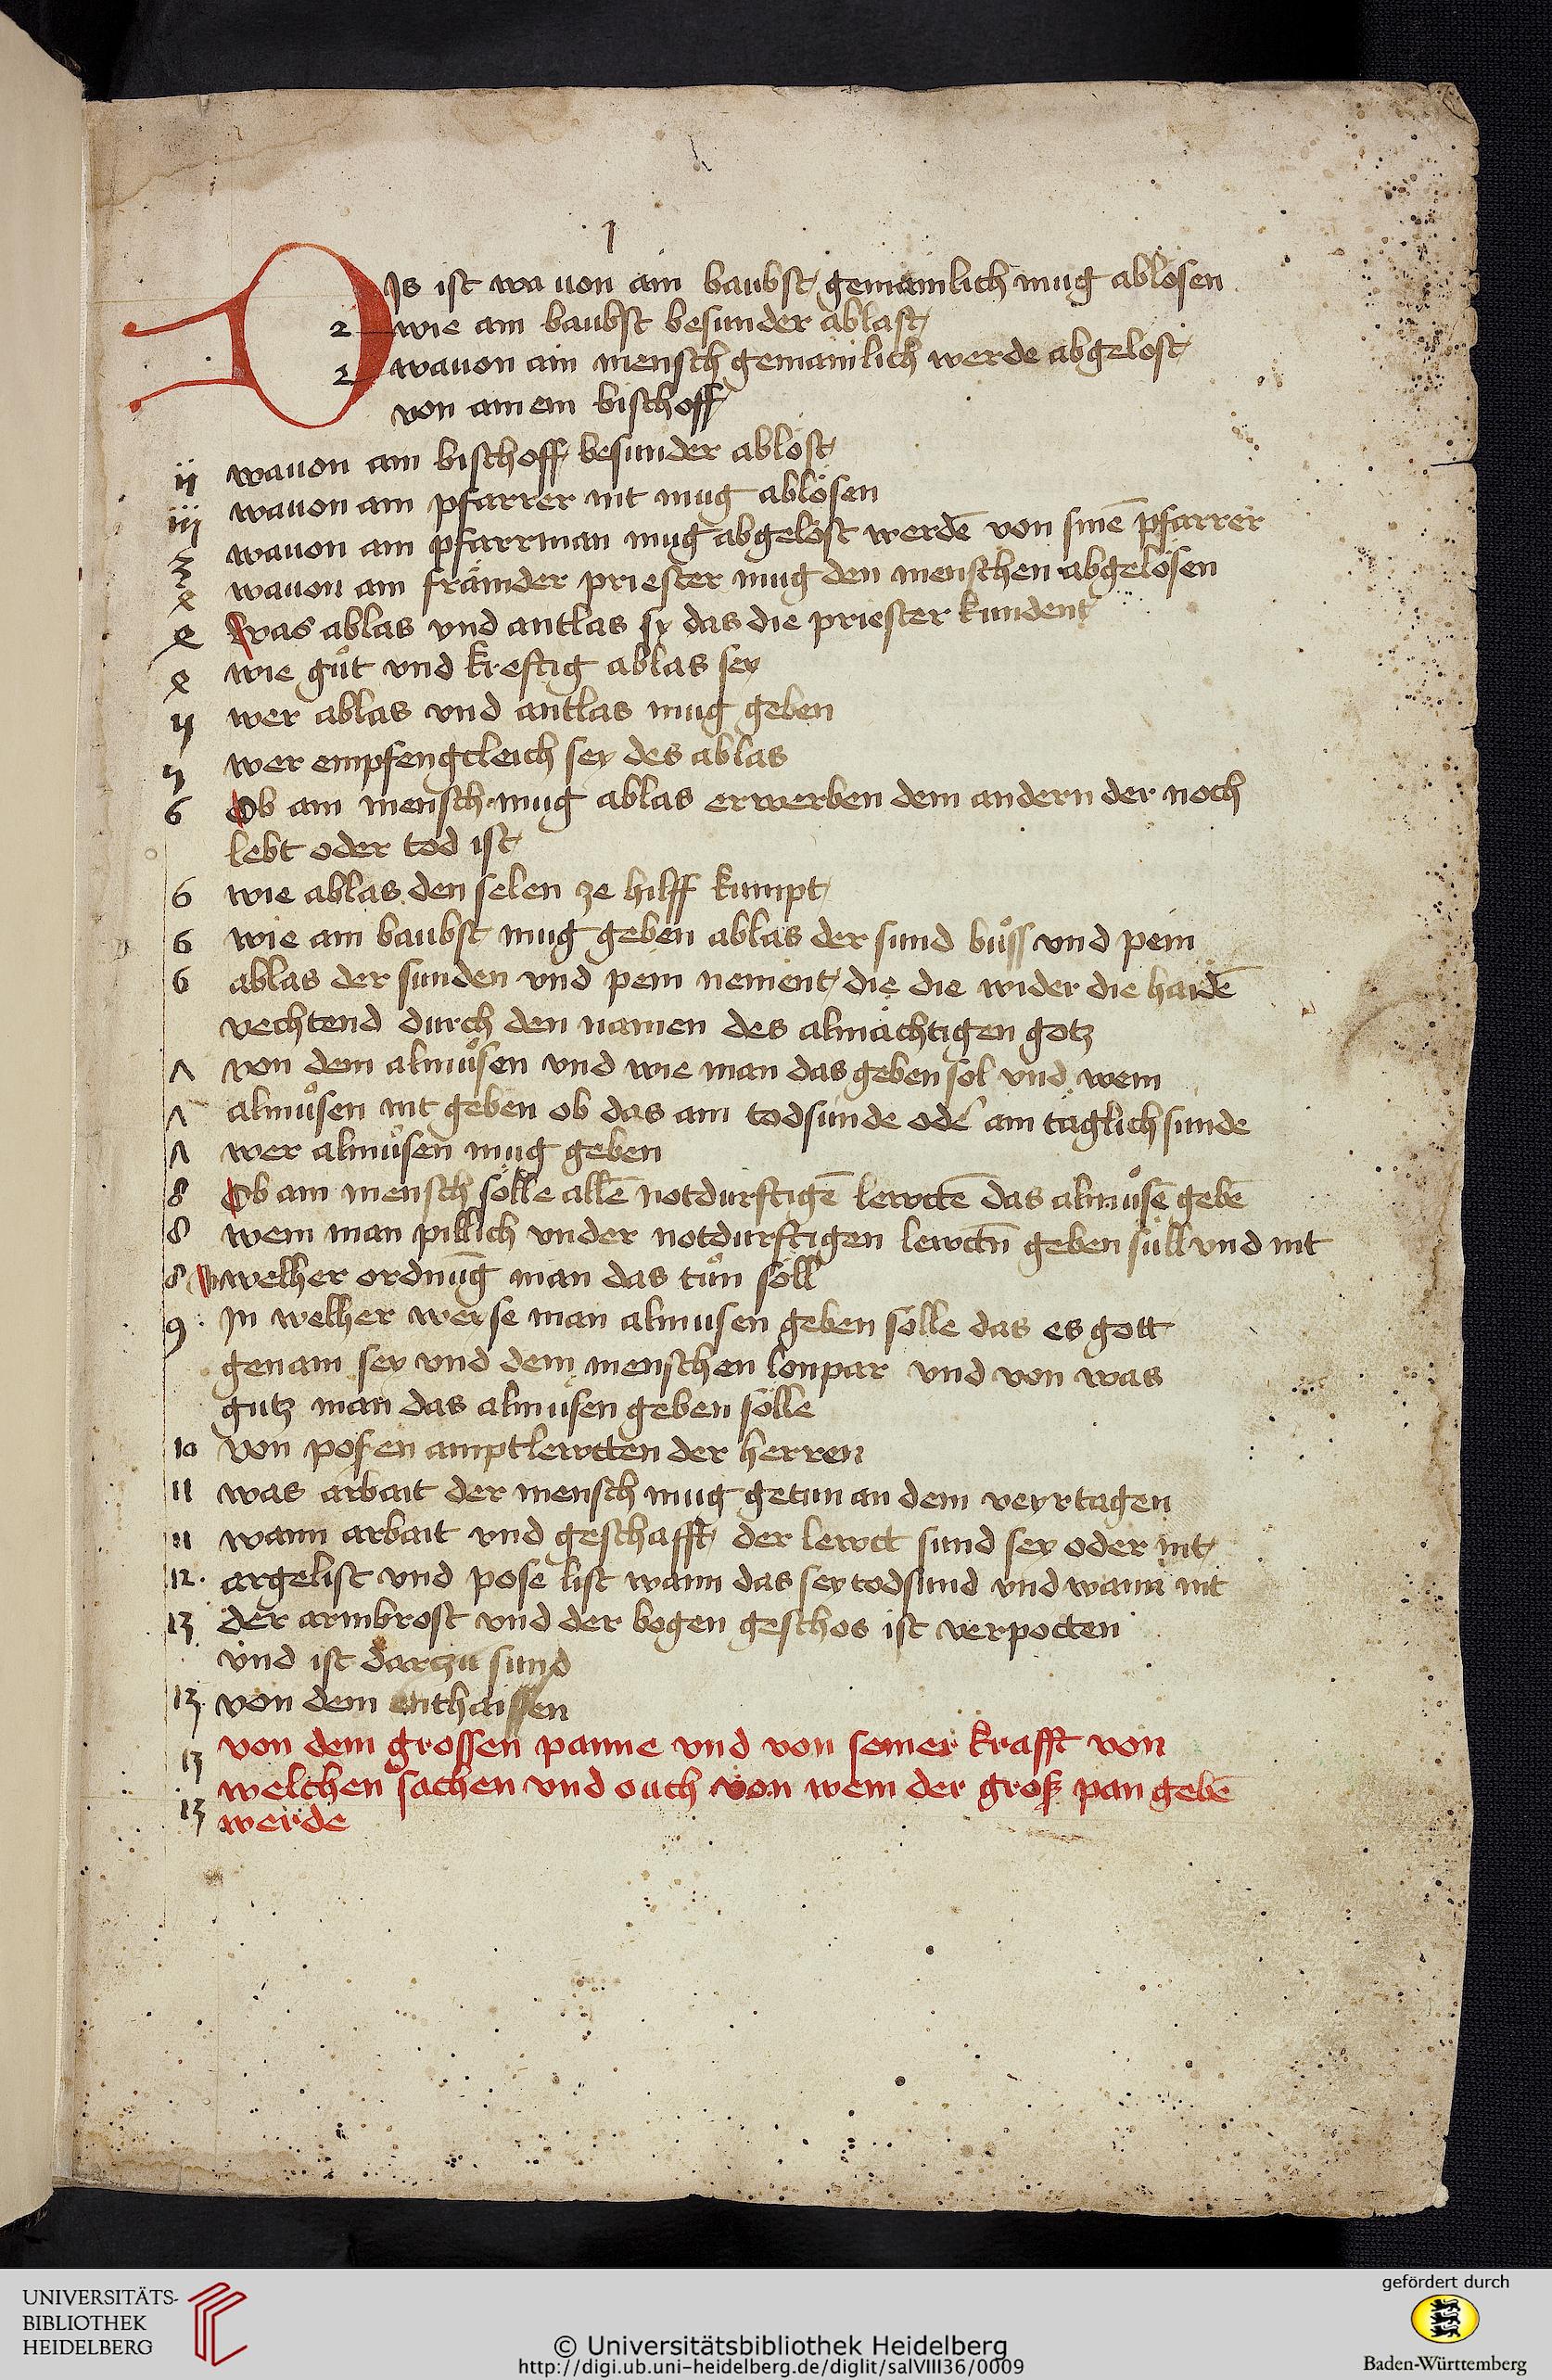 1
DIs ist wa uon ain baubst gemainlich mug ablösen
2 wie ain baubst besunder ablast
2 wauon ain mensch gemainlich werde abgelost
von ainem bischoff
ij wauon ain bischoff besunder ablöst
iij wauon ain pfarrer nit mug ablösen
3 wauon ain pfarrman mug abgelöst werdē von sinē pfarrer
wauon ain främder priester mug den menschen abgelösen
was ablas vnd antlas sy das die priester kundent
wie gůt vnd kreftig ablas sey
ij wer ablas vnd antlas mug geben
ij wer empfengcleich sey des ablas
6 Ob ain mensch mug ablas erwerben dem andern der noch
lebt oder tod ist
6 wie ablas den selen ze hilff kumpt
6 wie ain baubst mug geben ablas der sund bůss vnd pein
6 ablas der sunden vnd pein nement die die wider die haidē
vechtend durch den namen des almächtigen gotz
ʌ von dem almůsen vnd wie man das geben söl vnd wem
ʌ almůsen nit geben ob das ain todsunde odē ain täglich sunde
ʌ wer almůsen mug geben
8 Ob ain mensch sölle allē notdurftigē lewttē das almůsē gebē
8 wem man pillich vnder notdurftigen lewttn̄ geben süll vnd nit
8 In welher ordnūg man das tůn söll
9 In welher weyse man almusen geben sölle das es gott
genam sey vnd dem menschen lonpar vnd von was
gutz man das almusen geben sölle
10 von posen amptlewtten der herren
11 was arbait der mensch mug getun an dem veyrtagen
11 wann arbait vnd geschafft der lewtt sund sey oder nit
12 argelist vnd pose list wann das sey todsund vnd wann nit
13 der armbrost vnd der bogen geschos ist verpotten
vnd ist darzu sund
13 von dem enthaissen
13 von dem grossen panne vnd von seiner krafft von
13 welchen sachen vnd ouch von wem der groß pan gebē
werde
UNIVERSITÄTS-
BIBLIOTHEK
HEIDELBERG
© Universitätsbibliothek Heidelberg
http://digi.ub.uni-heidelberg.de/diglit/salVIII36/0009
gefördert durch
Baden-Württemberg